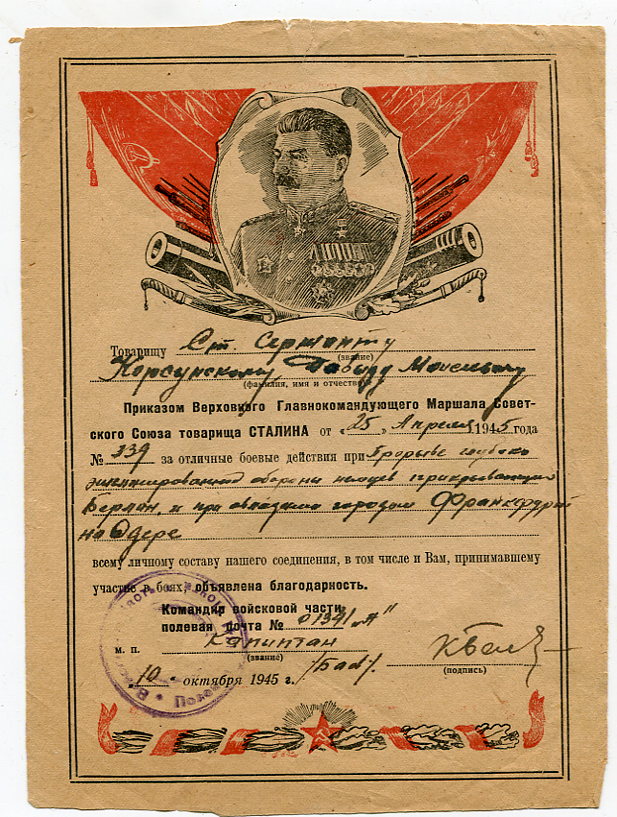 Товарищу Ст. Сержанту
(звание)
Корсунскому Давыду Моисеевичу
(фамилия, имя и отчество)
Приказом Верховного Главнокомандующего Маршала Совет-
ского Союза товарища СТАЛИНА от „25„ Апреля 1945 года
№ 339 за отличные боевые действия при Прорыве глубоко
эшелонированной обороны немцев прикрывающей
Берлин, и при овладении городом Франкфурт
на Одере
всему личному составу нашего соединения, в том числе и Вам, принимавшему
участие в боях, объявлена благодарность.
Командир войсковой части
полевая почта № 01391 „А"
Капитан
м. п.
(звание)
(подпись)
„10„ октября 1945 г.